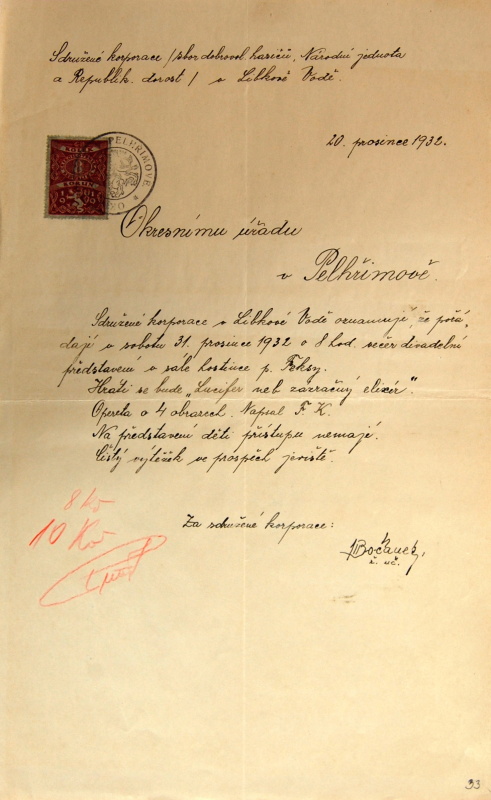 Sdružené korporace /sbor dobrovol. hasičů, Národní jednota
a Republik. dorost/ v Libkově Vodě.
20. prosince 1932.
KOLEK
PELHŘIMOVĚ
KORUN
Okresnímu úřadu
v Pelhřimově.
Sdružené korporace v Libkově Vodě oznamují, že pořá-
dají v sobotu 31. prosince 1932 o 8 hod. večer divadelní
představení v sále hostince p. Feksy.
Hráti se bude „Lucifer neb zázračný elixír".
Opereta o 4 obrazech. Napsal F. K.
Na představení děti přístupu nemají.
Čistý výtěžek ve prospěch jeviště.
8 Kč
10 Kč
Za sdružené korporace:
33